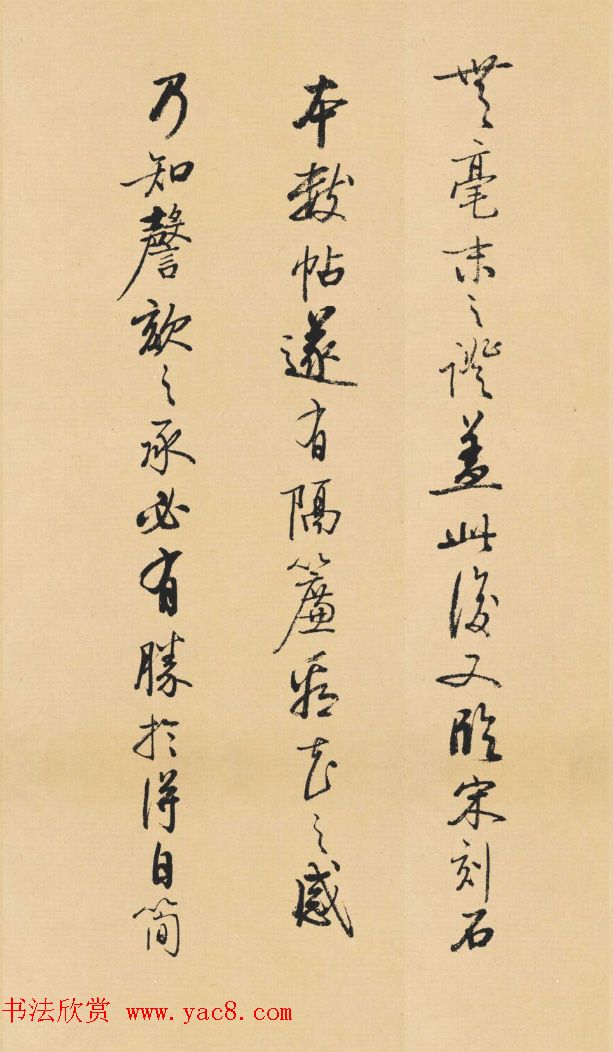 無毫末之證盖此後又臨宋刻石
本數帖遂有隔簾看花之感
乃知謦欬之承必有勝於得自簡
书法欣赏 www.yac8.com